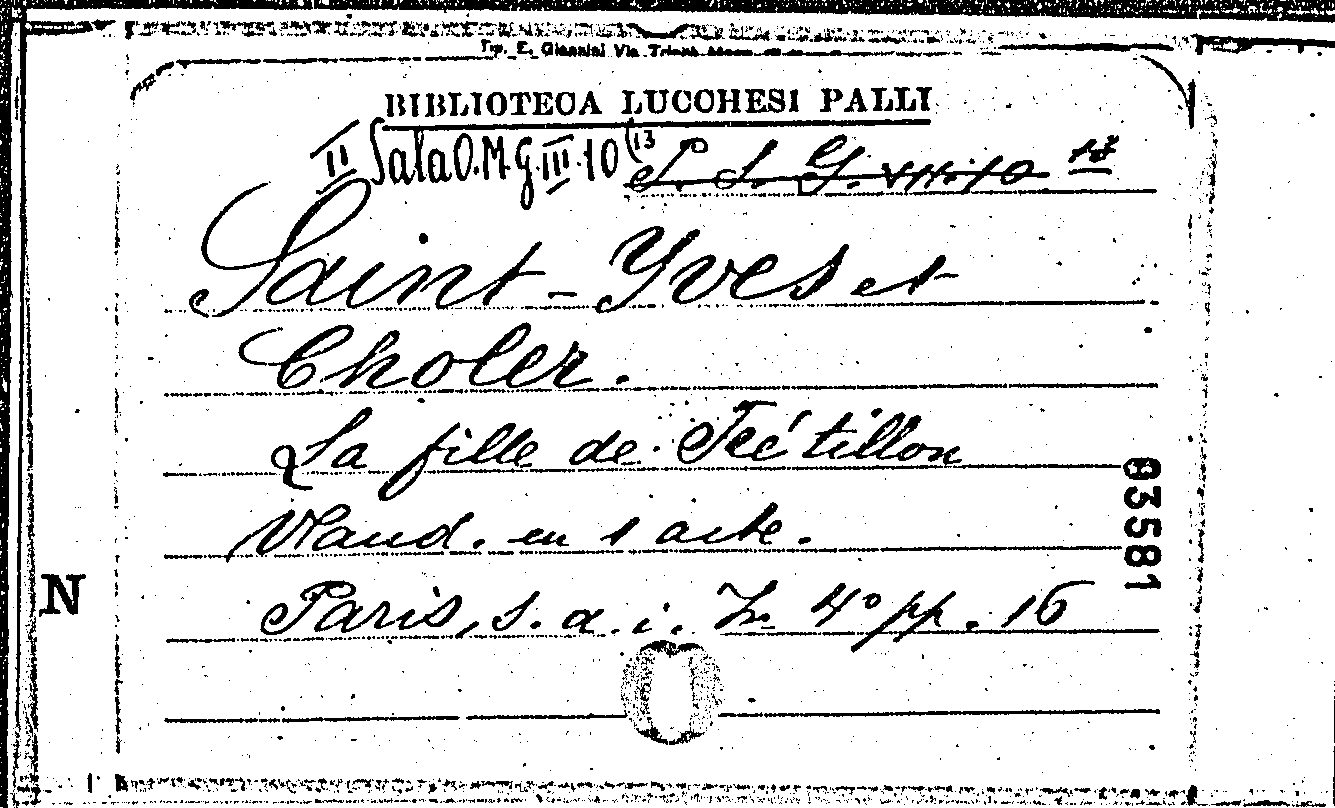 Tip. E. Giannini Via
BIBLIOTECA LUCCHESI PALLI
II Sala O.M.G. III. 10 (13
Saint-Yves et
Choler.
La fille de Frétillon
Vaud. en 1 acte.
Paris, s. a. i. 4° pp. 16
03581
N